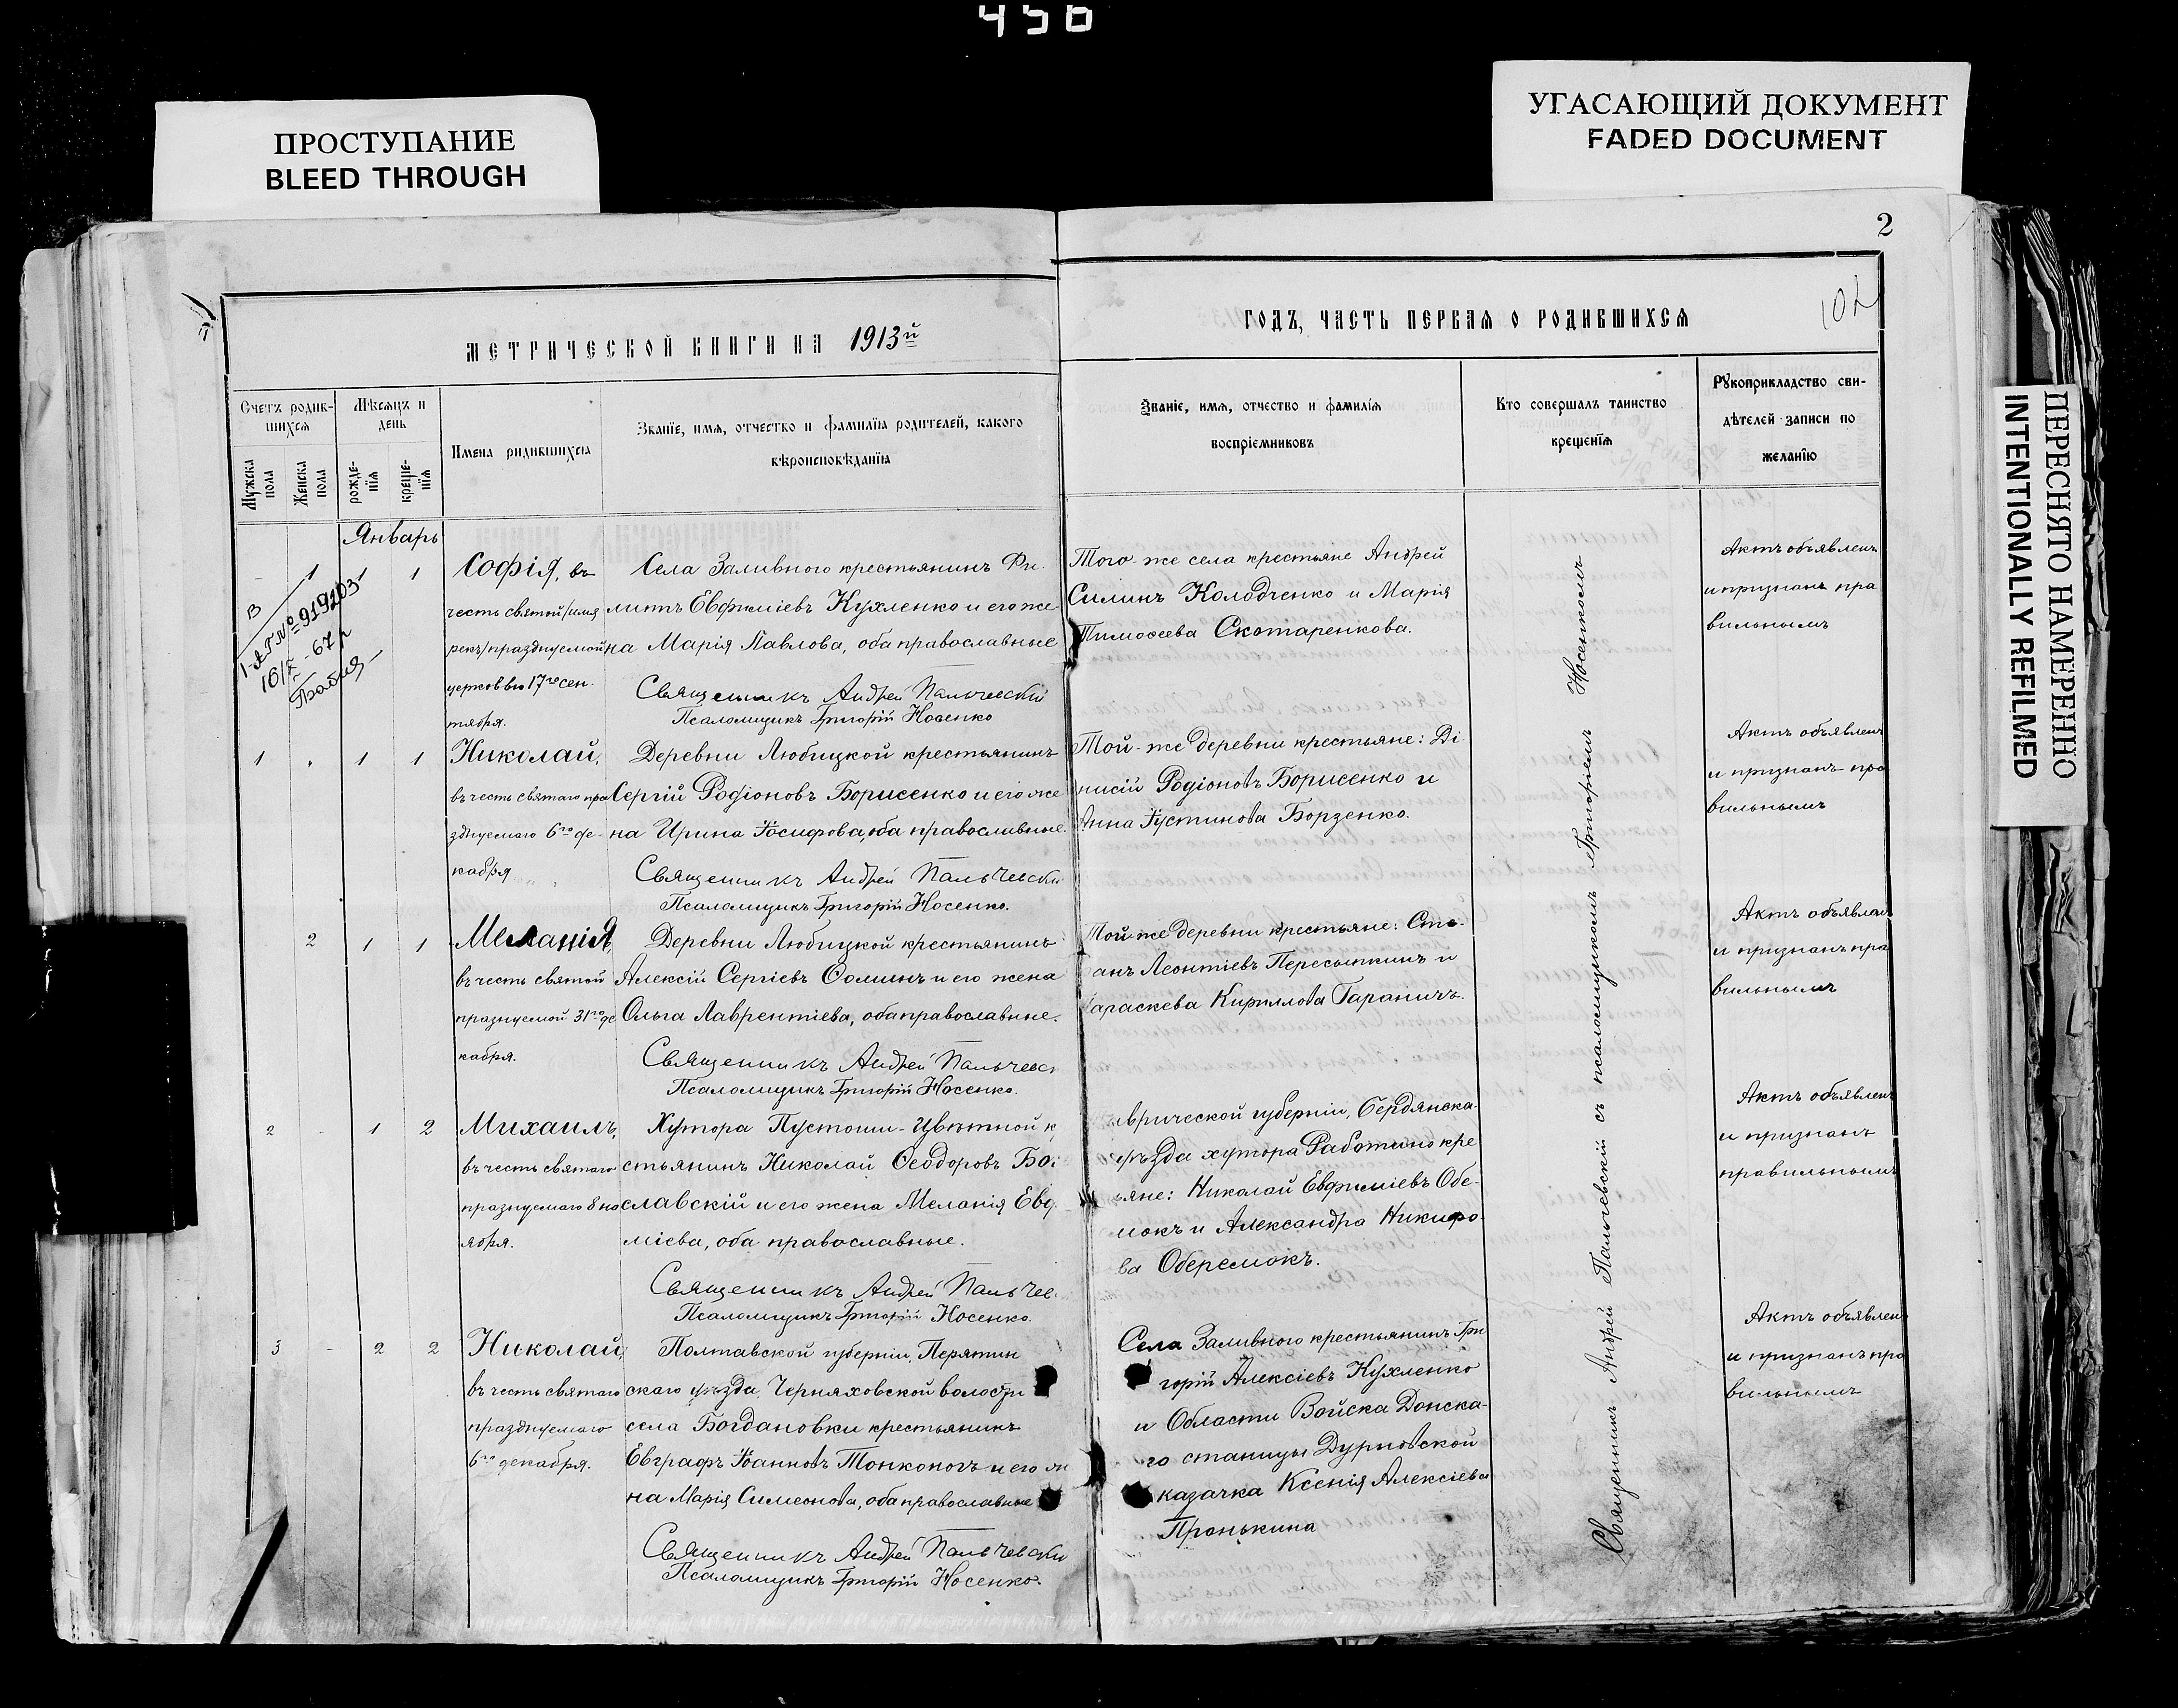 456
ПРОСТУПАНИЕ
BLEED THROUGH
УГАСАЮЩИЙ ДОКУМЕНТ
FADED DOCUMENT
ПЕРЕСНЯТО НАМЕРЕННО
INTENTIONALLY REFILMED
2
102
МЕТРИЧЕСКОЙ КНИГИ НА 1913й
ГОДЪ, ЧАСТЬ ПЕРВАЯ О РОДИВШИХСЯ
Счетъ родив-
шихся
Мужска пола
Женска пола
Мѣсяцъ и
день
рожде-
нія
креще-
нія
Имена родившихся
Званіе, имя, отчество и фамилія родителей, какого
вѣроисповѣданія
Званіе, имя, отчество и фамилія
воспріемниковъ
Кто совершалъ таинство
крещенія
Рукоприкладство сви-
дѣтелей записи по
желанію
Январь
1 1 1
I-АГ № 919203
16/X-67 г
Софія, въ
честь святой /имя
рекъ/ празднуемой
церковью 17го сен-
тября.
Села Заливного крестьянинъ Фи-
липпъ Евфиміевъ Кухленко и его же-
на Марія Павлова, оба православные
Священникъ Андрей Пальчевский
Псаломщикъ Григорій Носенко
Того-же села крестьяне Андрей
Силинъ Колодченко и Марія
Тимоѳеева Скотаренкова.
Актъ объявленъ
и признанъ пра
вильнымъ
1 1 1
Николай,
въ честь святаго пра
зднуемаго 6го де-
кабря
Деревни Любицкой крестьянинъ
Сергій Родіоновъ Борисенко и его же
на Ирина Іосифова, оба православные.
Священникъ Андрей Пальчевски
Псаломщикъ Григорій Носенко.
Той-же деревни крестьяне: Ді
нисій Родіоновъ Борисенко и
Анна Іустинова Борзенко.
Актъ объявленъ
и признанъ пра
вильнымъ
2 1 1
Меланія,
въ честь святой
празнуемой 31го де
кабря.
Деревни Любицкой крестьянинъ
Алексій Сергіевъ Ѳоминъ и его жена
Ольга Лаврентіева, оба православные.
Священникъ Андрей Пальчевс
Псаломщикъ Григорій Носенко.
Той-же деревни крестьяне: Сте-
анъ Леонтіевъ Пересыпкинъ и
араскева Кириллова Гараничъ.
Актъ объявленъ
и признанъ пра
вильнымъ
2 - 1 2
Михаилъ,
въ честь святаго
празнуемаго 8 но
ября.
Хутора Пустоши-Цвѣтной к
стьянинъ Николай Ѳеодоровъ Бо
славскій и его жена Меланія Евф
міева, оба православные.
Священникъ Андрей Пальчев
Псаломщикъ Григорій Носенко.
аврической губерніи, Бердянска-
уѣзда хутора Работино кре
яне: Николай Евфиміевъ Обе-
мокъ и Александра Никифо-
ва Оберемокъ.
Актъ объявленъ
и признанъ
правильнымъ
3 - 2 2
Николай,
въ честь святаго
празднуемаго
6го декабря.
Полтавской губерніи, Перятин
скаго уѣзда, Черняховской волости
села Богдановки крестьянинъ
Евграфъ Іоанновъ Тонконогъ и его же
на Марія Симеонова, оба православные
Священникъ Андрей Пальчевски
Псаломщикъ Григорій Носенко.
Села Заливного крестьянинъ Гри
горій Алексіевъ Кухленко
и Области Войска Донска-
го станицы Дурновской
казачка Ксенія Алексіева
Пронькина
Актъ объявленъ
и признанъ пра
вильнымъ
Священникъ Андрей Пальчевскій съ псаломщикомъ Григоріемъ Носенкомъ